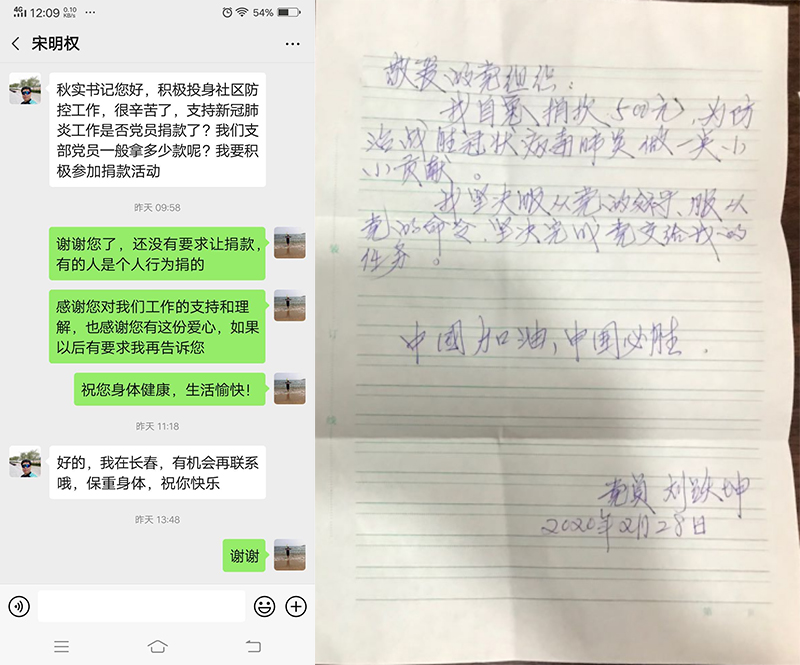 4G 12:09 0.10 KB/s ... 54%
宋明权
秋实书记您好，积极投身社区防
控工作，很辛苦了，支持新冠肺
炎工作是否党员捐款了？我们支
部党员一般拿多少款呢？我要积
极参加捐款活动
昨天 09:58
谢谢您了，还没有要求让捐款，
有的人是个人行为捐的
感谢您对我们工作的支持和理
解，也感谢您有这份爱心，如果
以后有要求我再告诉您
祝您身体健康，生活愉快！
昨天 11:18
好的，我在长春，有机会再联系
哦，保重身体，祝你快乐
昨天 13:48
谢谢
敬爱的党组织：
我自愿捐款500元，为防
治战胜冠状病毒肺炎做一点小
小贡献。
我坚决服从党的领导、服从
党的命令、坚决完成党交给我的
任务。
中国加油，中国必胜．
党员 刘跃坤
2020年2月28日